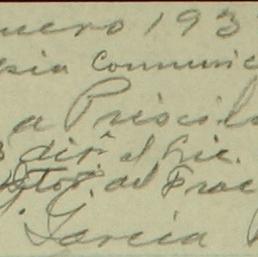 uero 193
sia Comunic
a Priscil
dió el Lic.
del Frac
García